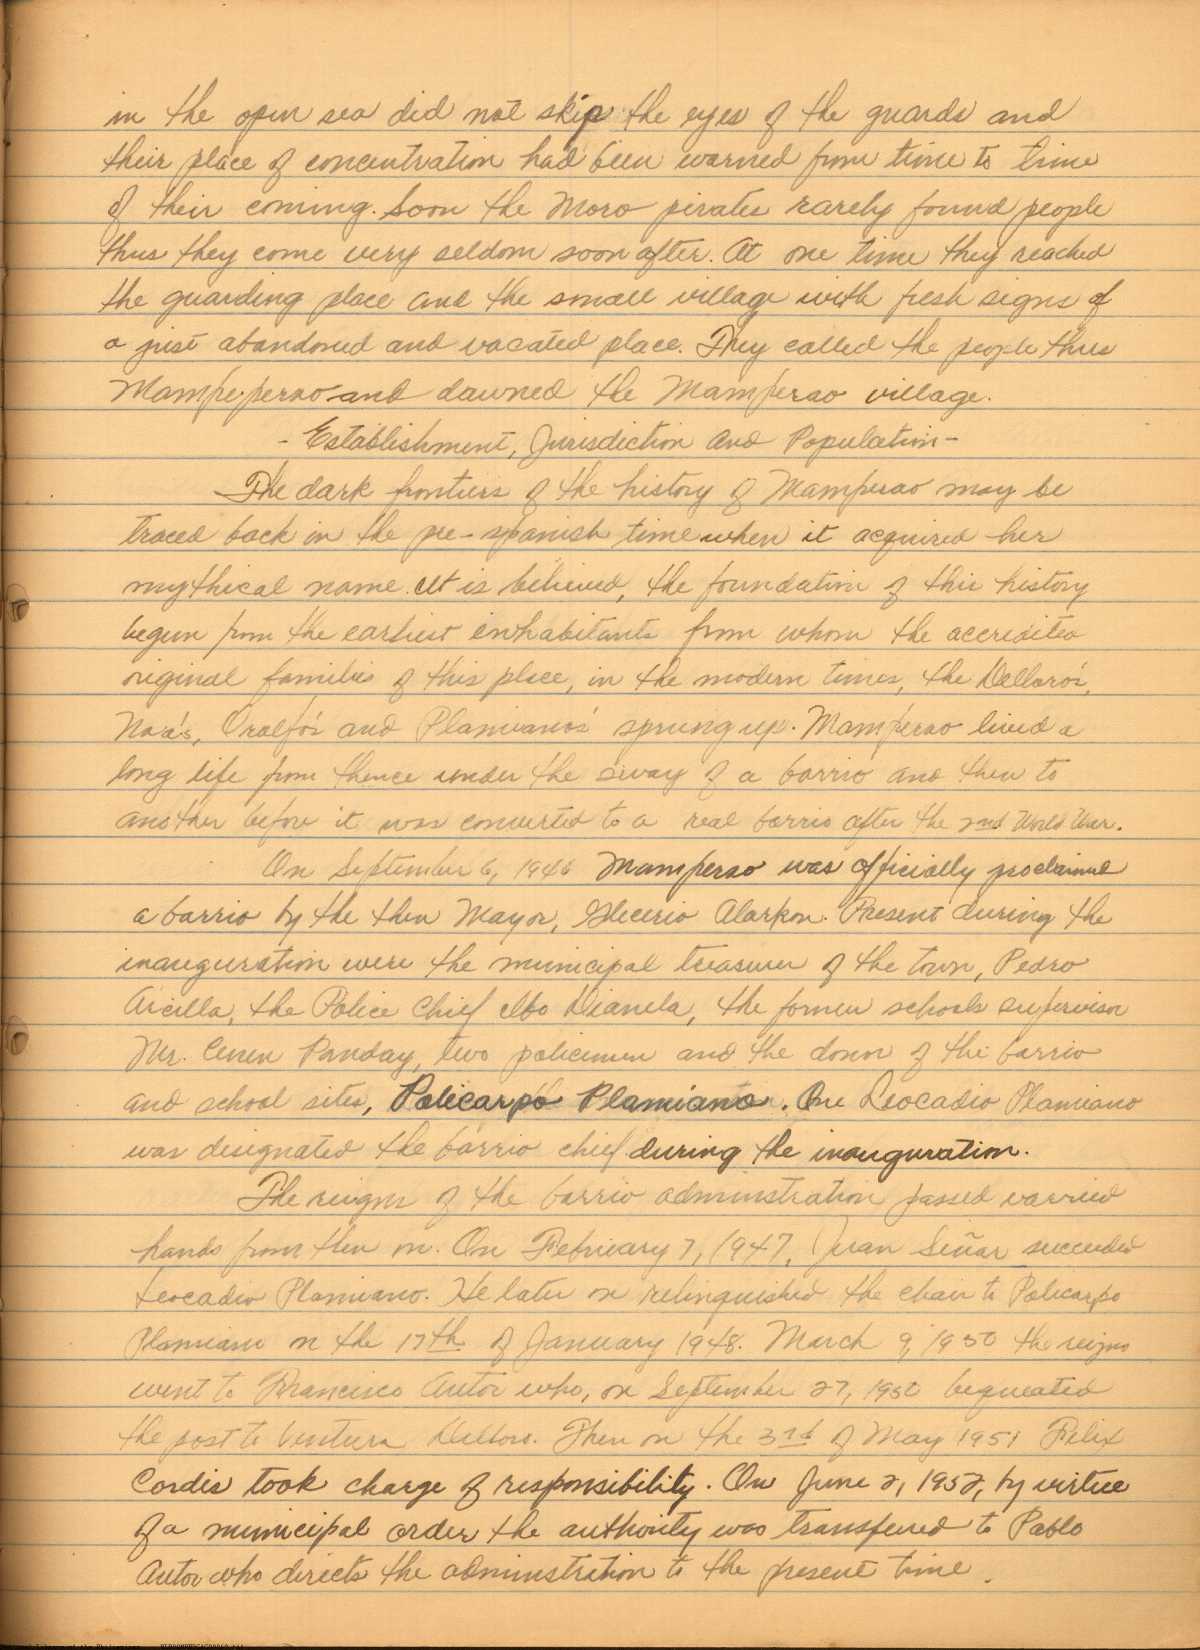 in the open sea did not skip the eyes of the guards and
their place of concentration had been warned from time to time
of their coming. Soon the Moro pirates rarely found people
thus they come very seldom soon after. At one time they reached
the guarding place and the small village with fresh signs of
a just abandoned and vacated place. They called the people thus
Mampe-perao and dawned the Mamperao village.
- Establishment, Jurisdiction and Population -
The dark frontiers of the history of Mamperao may be
traced back in the pre-spanish time when it acquired her
mythical name. It is believed, the foundation of this history
begun from the earliest enhabitants from whom the accredited
original families of this place, in the modern times, the Velloro's,
Naa's, Oralfo's and Plamiano's sprung up. Mamperao lived a
long life from thence under the sway of a barrio and then to
another before it was converted to a real barrio after the 2nd World War.
On September 6, 1946 Mamperao was officially proclaimed
a barrio by the then Mayor, Glecerio Alarkon. Present during the
inauguration were the municipal treasurer of the town, Pedro
Arcilla, the Police Chief Ibo Dianela, the former schools supervisor
Mr. Cenen Panday, two policemen and the donor of the barrio
and school sites, Policarpo Plamiano. One Leocadio Plamiano
was designated the barrio chief during the inauguration.
The reigns of the barrio adminstration passed varried
hands from then on. On February 7, 1947, Juan Señar succeeded
Leocadio Plamiano. He later on relinquished the chair to Policarpo
Plamiano on the 17th of January 1948. March 9, 1950 the reigns
went to Francisco Autor who, on September 27, 1950 bequeated
the post to Ventura Velloro. Then on the 3rd of May 1951 Felix
Cordis took charge of responsibility. On June 2, 1952, by virtue
of a municipal order the authority was transfered to Pablo
Autor who directs the adminstration to the present time.